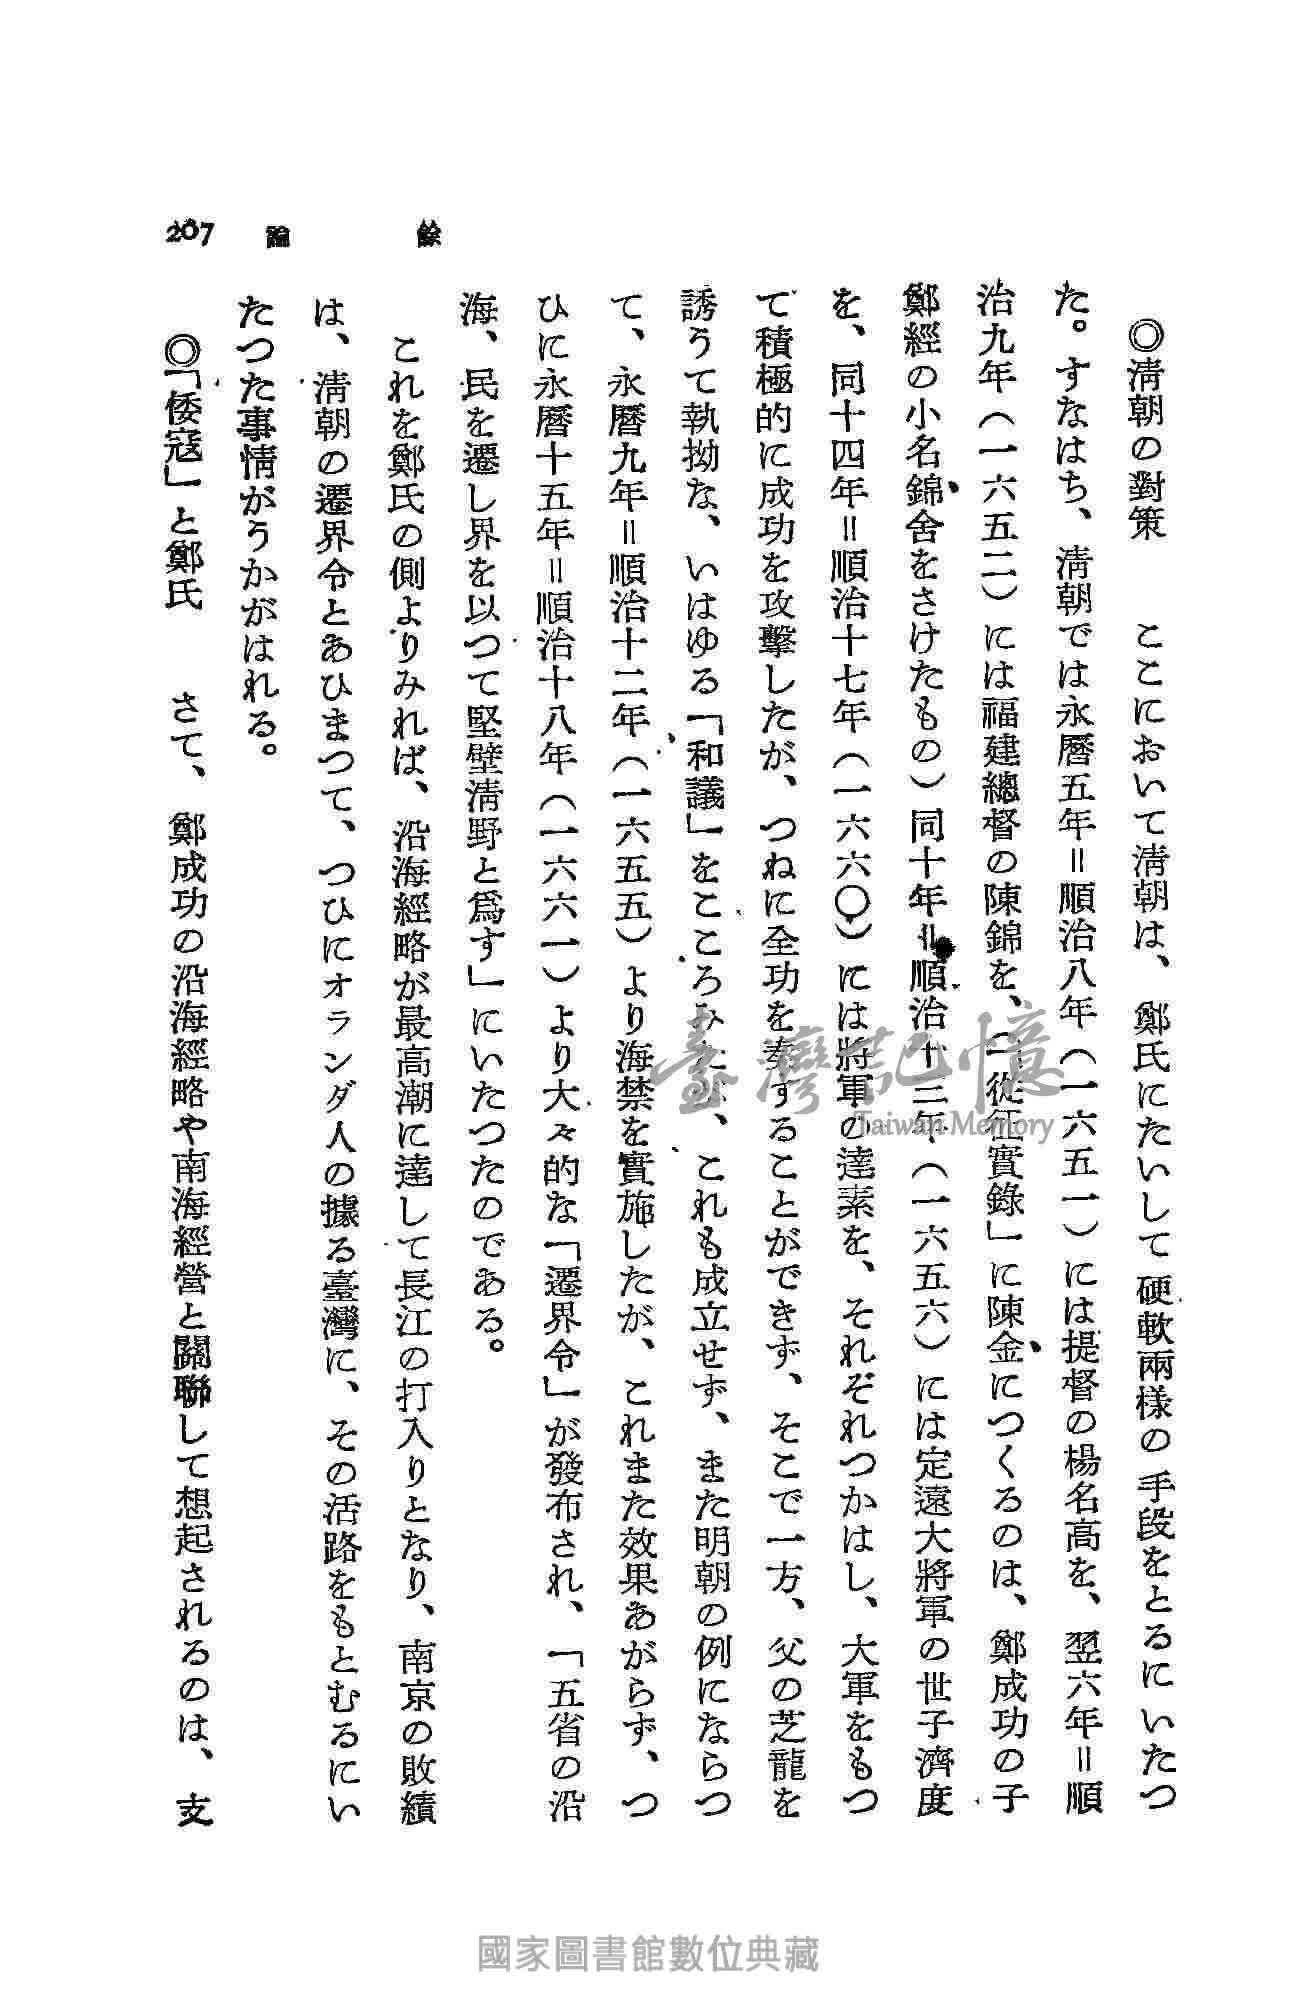 餘論
207
◎淸朝の對策　　ここにおいて淸朝は、鄭氏にたいして硬軟兩樣の手段をとるにいたつ
た。すなはち、淸朝では永曆五年＝順治八年（一六五一）には提督の楊名高を、翌六年＝順
治九年（一六五二）には福建總督の陳錦を、（「從征實錄」に陳金につくるのは、鄭成功の子
鄭經の小名錦舍をさけたもの）同十年＝順治十三年（一六五六）には定遠大將軍の世子濟度
を、同十四年＝順治十七年（一六六〇）には將軍の達素を、それぞれつかはし、大軍をもつ
て積極的に成功を攻擊したが、つねに全功を奏することができず、そこで一方、父の芝龍を
誘うて執拗な、いはゆる「和議」をこころみたが、これも成立せず、また明朝の例にならつ
て、永曆九年＝順治十二年（一六五五）より海禁を實施したが、これまた效果あがらず、つ
ひに永曆十五年＝順治十八年（一六六一）より大々的な「遷界令」が發布され、「五省の沿
海、民を遷し界を以つて堅壁淸野と爲す」にいたつたのである。
これを鄭氏の側よりみれば、沿海經略が最高潮に達して長江の打入りとなり、南京の敗績
は、淸朝の遷界令とあひまつて、つひにオランダ人の據る臺灣に、その活路をもとむるにい
たつた事情がうかがはれる。
◎「倭寇」と鄭氏　　さて、鄭成功の沿海經略や南海經營と關聯して想起されるのは、支
臺灣記憶
Taiwan Memory
國家圖書館數位典藏